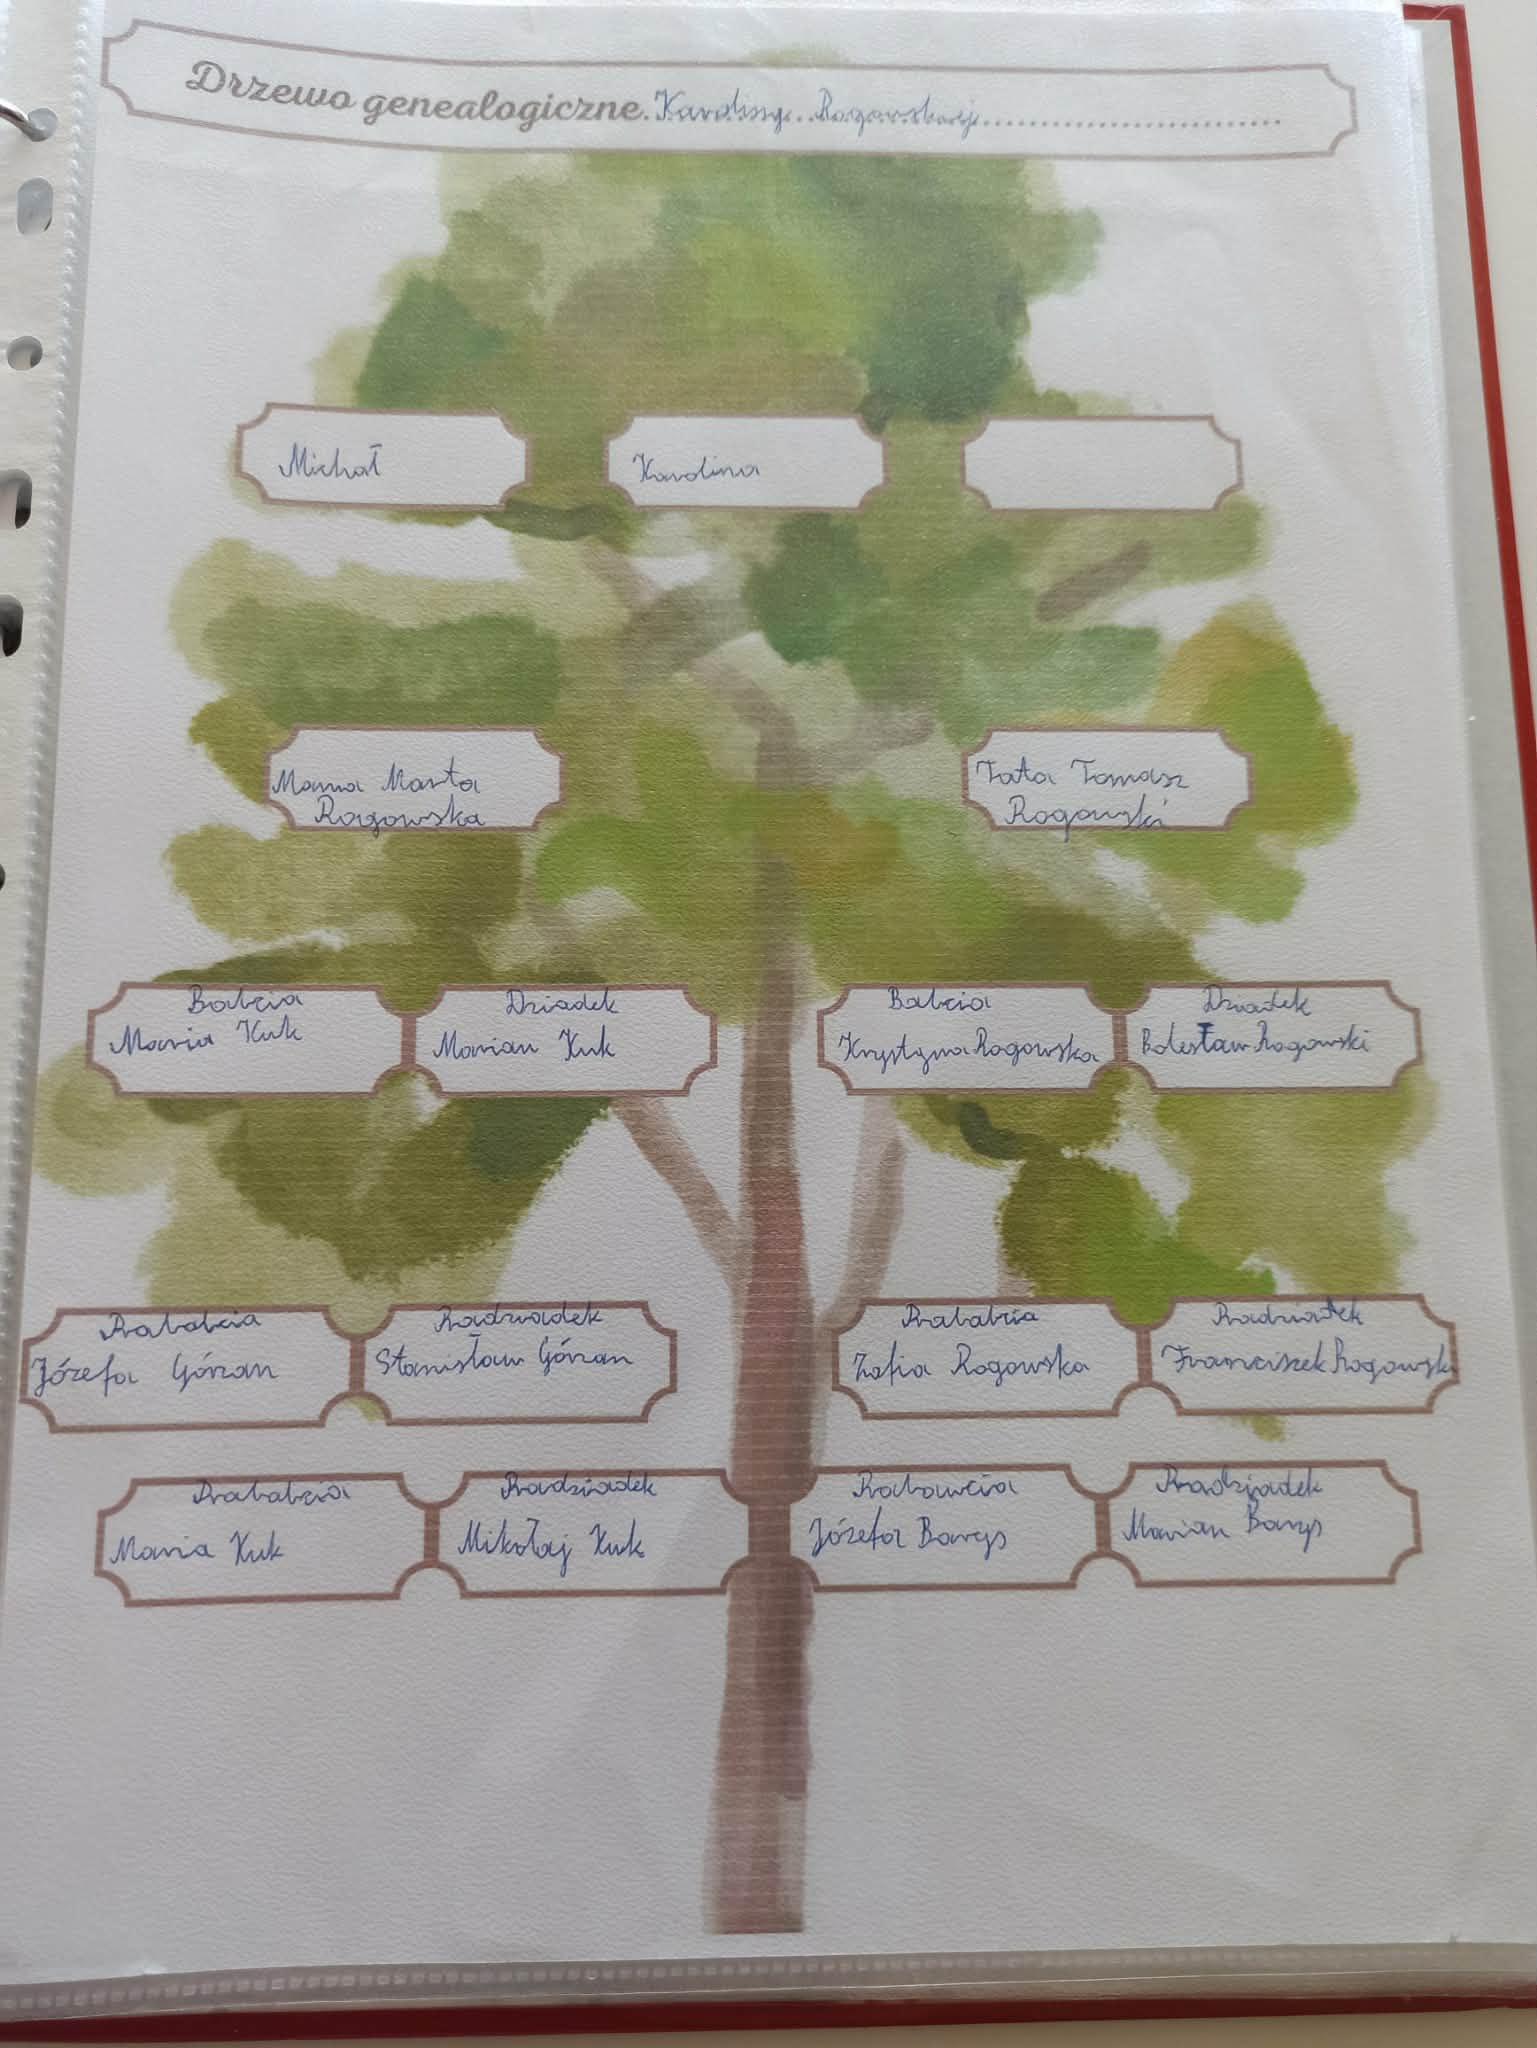 Drzewo genealogiczne Karoliny Rogowskiej
Michał
Karolina
Mama Marta
Rogowska
Tata Tomasz
Rogowski
Babcia
Maria Kuk
Dziadek
Marian Kuk
Babcia
Krystyna Rogowska
Dziadek
Bolesław Rogowski
Prababcia
Józefa Górzan
Pradziadek
Stanisław Górzan
Prababcia
Zofia Rogowska
Pradziadek
Franciszek Rogowski
Prababcia
Maria Kuk
Pradziadek
Mikołaj Kuk
Józefa Barys
Pradziadek
Marian Barys